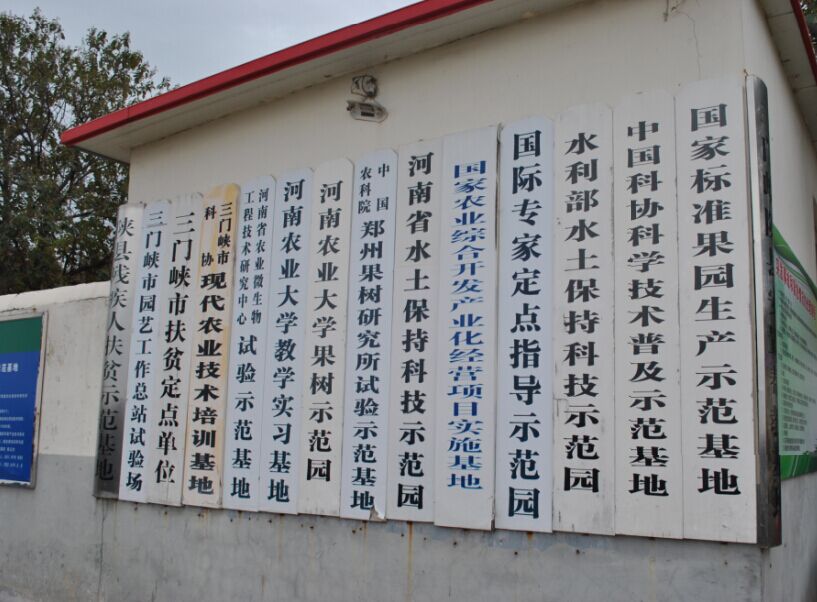 国家标准果园生产示范基地
中国科协科学技术普及示范基地
水利部水土保持科技示范园
国际专家定点指导示范园
国家农业综合开发产业化经营项目实施基地
河南省水土保持科技示范园
中国农科院郑州果树研究所试验示范基地
河南农业大学果树示范园
河南农业大学教学实习基地
河南省农业微生物工程技术研究中心试验示范基地
三门峡市科协现代农业技术培训基地
三门峡市扶贫定点单位
三门峡市园艺工作总站试验场
陕县残疾人扶贫示范基地